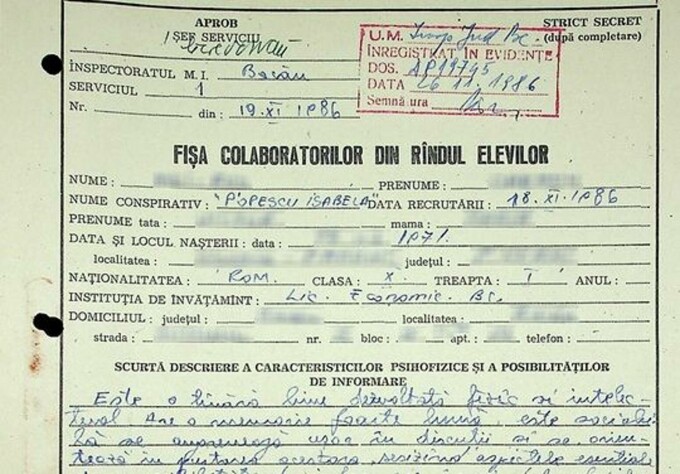 APROB
ȘEF SERVICIU
STRICT SECRET
(după completare)
U.M. Insp Jud Bc.
ÎNREGISTRAT ÎN EVIDENȚE
DOS. AP19745
DATA 26 11. 1986
Semnătura
INSPECTORATUL M.I. Bacău
SERVICIUL 1
Nr. din: 19.XI 1986
FIȘA COLABORATORILOR DIN RÎNDUL ELEVILOR
NUME: PRENUME:
NUME CONSPIRATIV: "POPESCU ISABELA" DATA RECRUTĂRII: 18.XI.1986
PRENUME tata: mama:
DATA ȘI LOCUL NAȘTERII: data: 1971.
localitatea: județul:
NAȚIONALITATEA: ROM. CLASA: X. TREAPTA: I ANUL:
INSTITUȚIA DE ÎNVĂȚĂMÎNT: Lic. Economic. Bc.
DOMICILIUL: județul: localitatea:
strada: nr. bloc: apt. telefon:
SCURTĂ DESCRIERE A CARACTERISTICILOR PSIHOFIZICE ȘI A POSIBILITĂȚILOR
DE INFORMARE
Este o tînără bine dezvoltată fizic și intelec-
tual. Are o memorie foarte bună, este sociabi-
lă se antrenează ușor în discuții și se orien-
tează în purtarea acestora, sesizînd aspectele esențiale